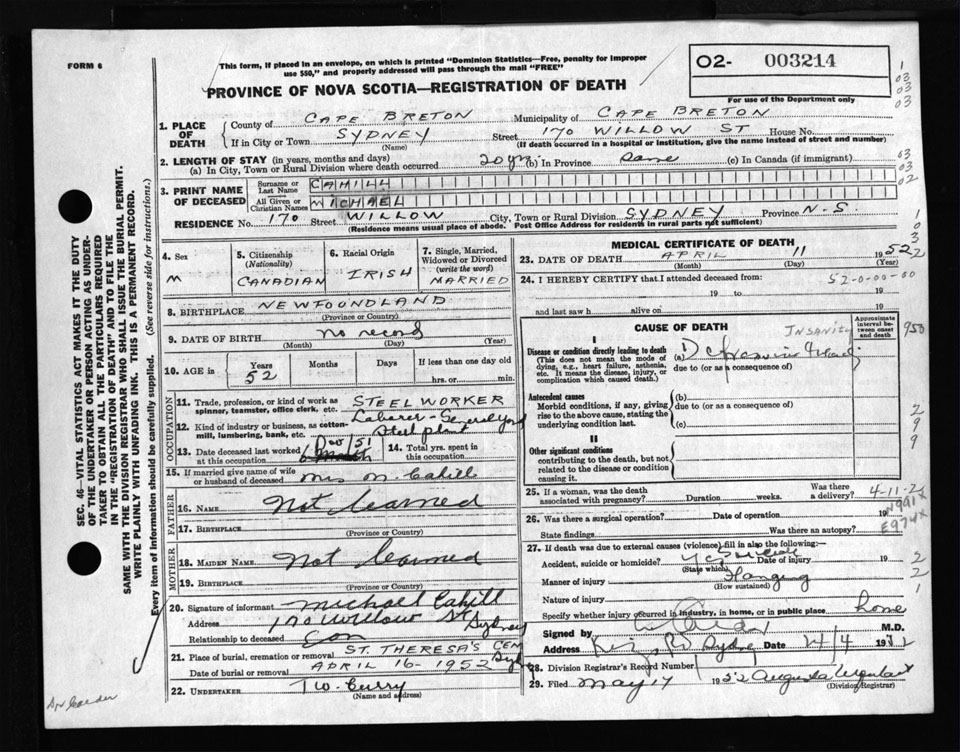 FORM 6
This form, if placed in an envelope, on which is printed "Dominion Statistics—Free, penalty for improper
use $50," and properly addressed will pass through the mail "FREE"
PROVINCE OF NOVA SCOTIA—REGISTRATION OF DEATH
O2- 003214
For use of the Department only
1. PLACE OF DEATH
County of CAPE BRETON Municipality of CAPE BRETON
If in City or Town SYDNEY Street 170 WILLOW ST House No.
(Name) (If death occurred in a hospital or institution, give the name instead of street and number)
2. LENGTH OF STAY (in years, months and days)
(a) In City, Town or Rural Division where death occurred 20 yrs (b) In Province same (c) In Canada (if immigrant)
3. PRINT NAME OF DECEASED
Surname or Last Name CAHILL
All Given or Christian Names MICHAEL
RESIDENCE No. 170 Street WILLOW City, Town or Rural Division SYDNEY Province N-S.
(Residence means usual place of abode. Post Office Address for residents in rural parts not sufficient)
4. Sex
M
5. Citizenship
(Nationality)
CANADIAN
6. Racial Origin
IRISH
7. Single, Married, Widowed or Divorced
(write the word)
MARRIED
8. BIRTHPLACE NEWFOUNDLAND
(Province or Country)
9. DATE OF BIRTH no record
(Month) (Day) (Year)
10. AGE in Years 52 Months Days If less than one day old
hrs. or min.
OCCUPATION
11. Trade, profession, or kind of work as spinner, teamster, office clerk, etc. STEEL WORKER
12. Kind of industry or business, as cotton-mill, lumbering, bank, etc. Laborer - General yard
Steel plant
13. Date deceased last worked at this occupation 51
14. Total yrs. spent in this occupation
15. If married give name of wife or husband of deceased Mrs M. Cahill
FATHER
16. NAME Not learned
17. BIRTHPLACE
(Province or Country)
MOTHER
18. MAIDEN NAME Not learned
19. BIRTHPLACE
(Province or Country)
20. Signature of informant Michael Cahill
Address 170 Willow St Sydney
Relationship to deceased Son
21. Place of burial, cremation or removal ST. THERESA'S CEM
Date of burial or removal APRIL 16-1952 Syd
22. UNDERTAKER T W. Curry
(Name and address)
MEDICAL CERTIFICATE OF DEATH
23. DATE OF DEATH APRIL 11 1952
(Month) (Day) (Year)
24. I HEREBY CERTIFY that I attended deceased from: 52-0-00-00
19 to 19
and last saw h alive on 19
CAUSE OF DEATH
Approximate interval between onset and death
I
INSANITY
950
Disease or condition directly leading to death
(This does not mean the mode of dying, e.g., heart failure, asthenia, etc. It means the disease, injury, or complication which caused death.)
(a)
due to (or as a consequence of)
Antecedent causes
Morbid conditions, if any, giving rise to the above cause, stating the underlying condition last.
(b)
due to (or as a consequence of)
(c)
II
Other significant conditions
contributing to the death, but not related to the disease or condition causing it.
25. If a woman, was the death associated with pregnancy? Duration weeks. Was there a delivery? 4-11-2
26. Was there a surgical operation? Date of operation 19
N991X
State findings Was there an autopsy? E974X
27. If death was due to external causes (violence) fill in also the following:—
Accident, suicide or homicide? Date of injury 19
(State which)
Manner of injury Hanging
(How sustained)
Nature of injury
Specify whether injury occurred in industry, in home, or in public place home
Signed by M.D.
Address Sydney Date 24/4 1952
28. Division Registrar's Record Number
29. Filed May 17 1952 Augusta
(Division Registrar)
SEC. 46—VITAL STATISTICS ACT MAKES IT THE DUTY
OF THE UNDERTAKER OR PERSON ACTING AS UNDER-
TAKER TO OBTAIN ALL THE PARTICULARS REQUIRED
IN THE "REGISTRATION OF DEATH" AND TO FILE THE
SAME WITH THE DIVISION REGISTRAR WHO SHALL ISSUE THE BURIAL PERMIT.
WRITE PLAINLY WITH UNFADING INK. THIS IS A PERMANENT RECORD.
Every item of information should be carefully supplied. (See reverse side for instructions.)